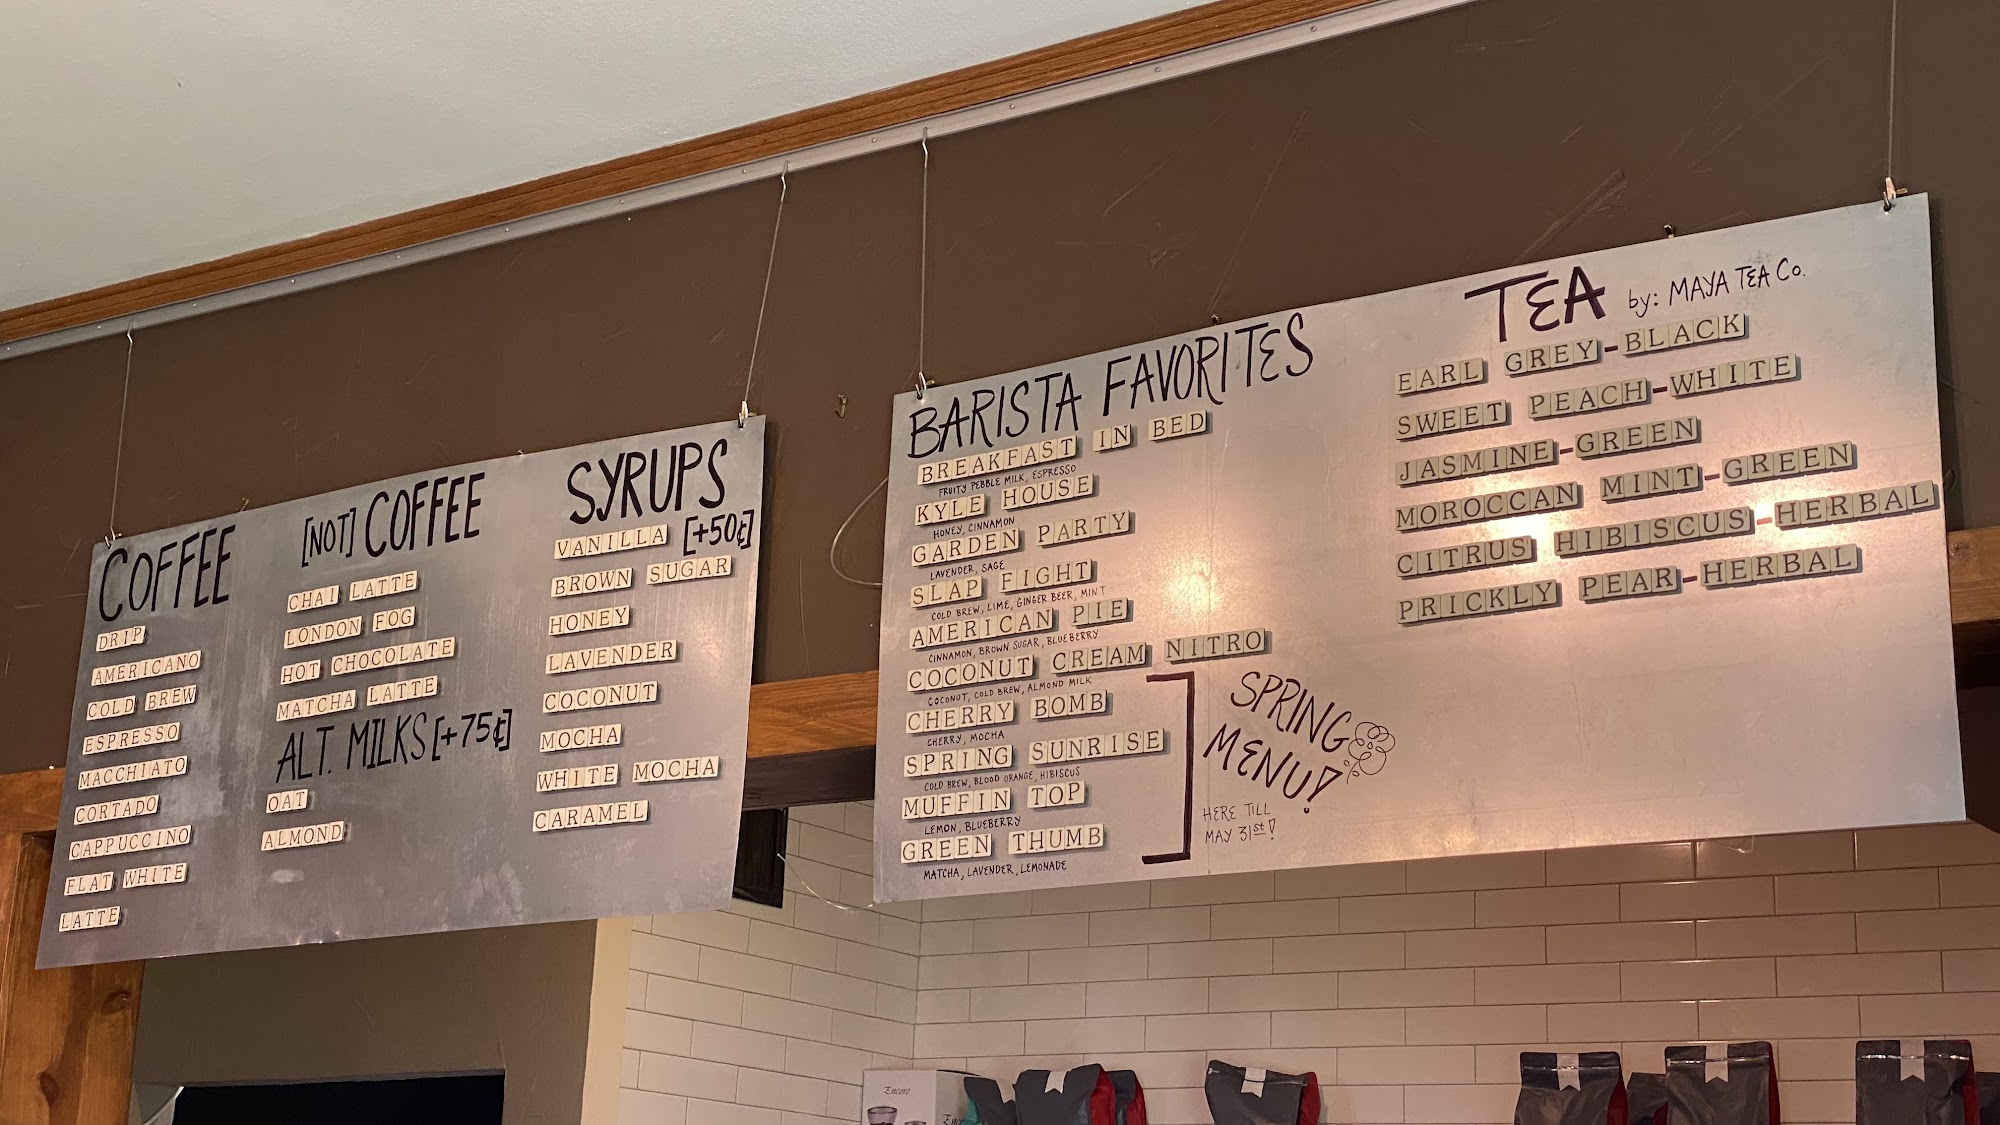 COFFEE
DRIP
AMERICANO
COLD BREW
ESPRESSO
MACCHIATO
CORTADO
CAPPUCCINO
FLAT WHITE
LATTE
[NOT] COFFEE
CHAI LATTE
LONDON FOG
HOT CHOCOLATE
MATCHA LATTE
ALT. MILKS [+75¢]
OAT
ALMOND
SYRUPS
[+50¢]
VANILLA
BROWN SUGAR
HONEY
LAVENDER
COCONUT
MOCHA
WHITE MOCHA
CARAMEL
BARISTA FAVORITES
BREAKFAST IN BED
FRUITY PEBBLE MILK, ESPRESSO
KYLE HOUSE
HONEY, CINNAMON
GARDEN PARTY
LAVENDER, SAGE
SLAP FIGHT
COLD BREW, LIME, GINGER BEER, MINT
AMERICAN PIE
CINNAMON, BROWN SUGAR, BLUEBERRY
COCONUT CREAM NITRO
COCONUT, COLD BREW, ALMOND MILK
CHERRY BOMB
CHERRY, MOCHA
SPRING SUNRISE
COLD BREW, BLOOD ORANGE, HIBISCUS
MUFFIN TOP
LEMON, BLUEBERRY
GREEN THUMB
MATCHA, LAVENDER, LEMONADE
SPRING
MENU!
HERE TILL
MAY 31st!
TEA by: MAYA TEA Co.
EARL GREY-BLACK
SWEET PEACH-WHITE
JASMINE-GREEN
MOROCCAN MINT-GREEN
CITRUS HIBISCUS-HERBAL
PRICKLY PEAR-HERBAL
Encore